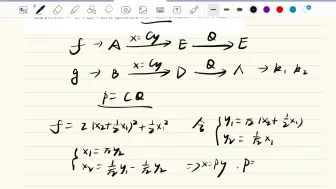 f → A —x=Cy→ E —Q→ E
g → B —x=Cy→ D —Q→ Λ → k₁, k₂
P = CQ
f = 2(x₂+½x₁)²+½x₁² 令 { y₁=√2(x₂+½x₁)
y₂=1/√2 x₁
{ x₁=√2y₂
x₂=1/√2 y₁-1/√2 y₂ ⇒x=Py . P=